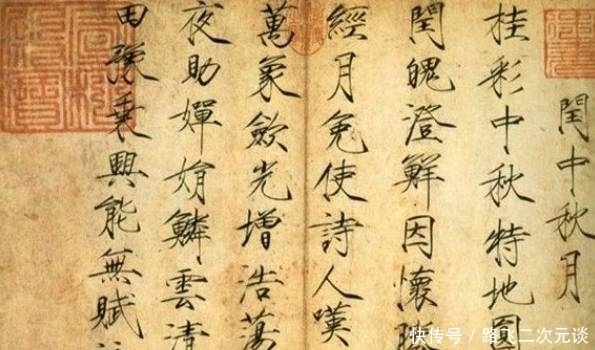 閏中秋月
桂彩中秋特地圓
閏魄澄鮮因懷勝
經月免使詩人嘆
萬象斂光增浩蕩
夜助嬋娟鱗雲清
田豫乘興能無賦
快传号 / 路飞二次元谈